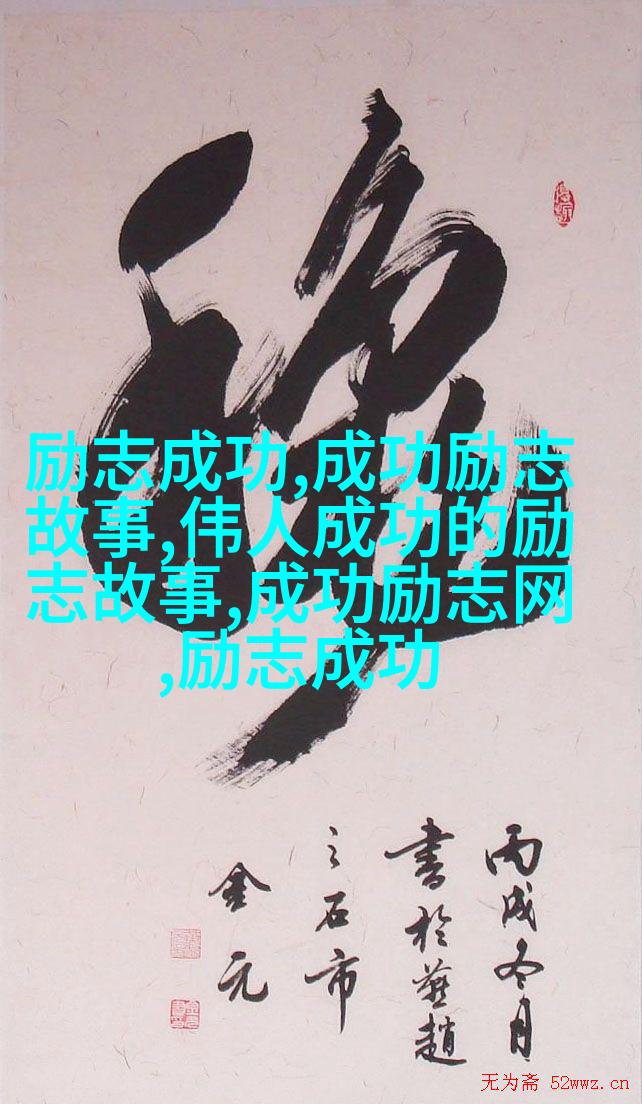 励志成功,成功励志
故事,伟人成功的励
志故事,成功励志网
,励志成功
丙戌冬月
書於燕趙
之石市
金元
无为斋 52wwz.cn